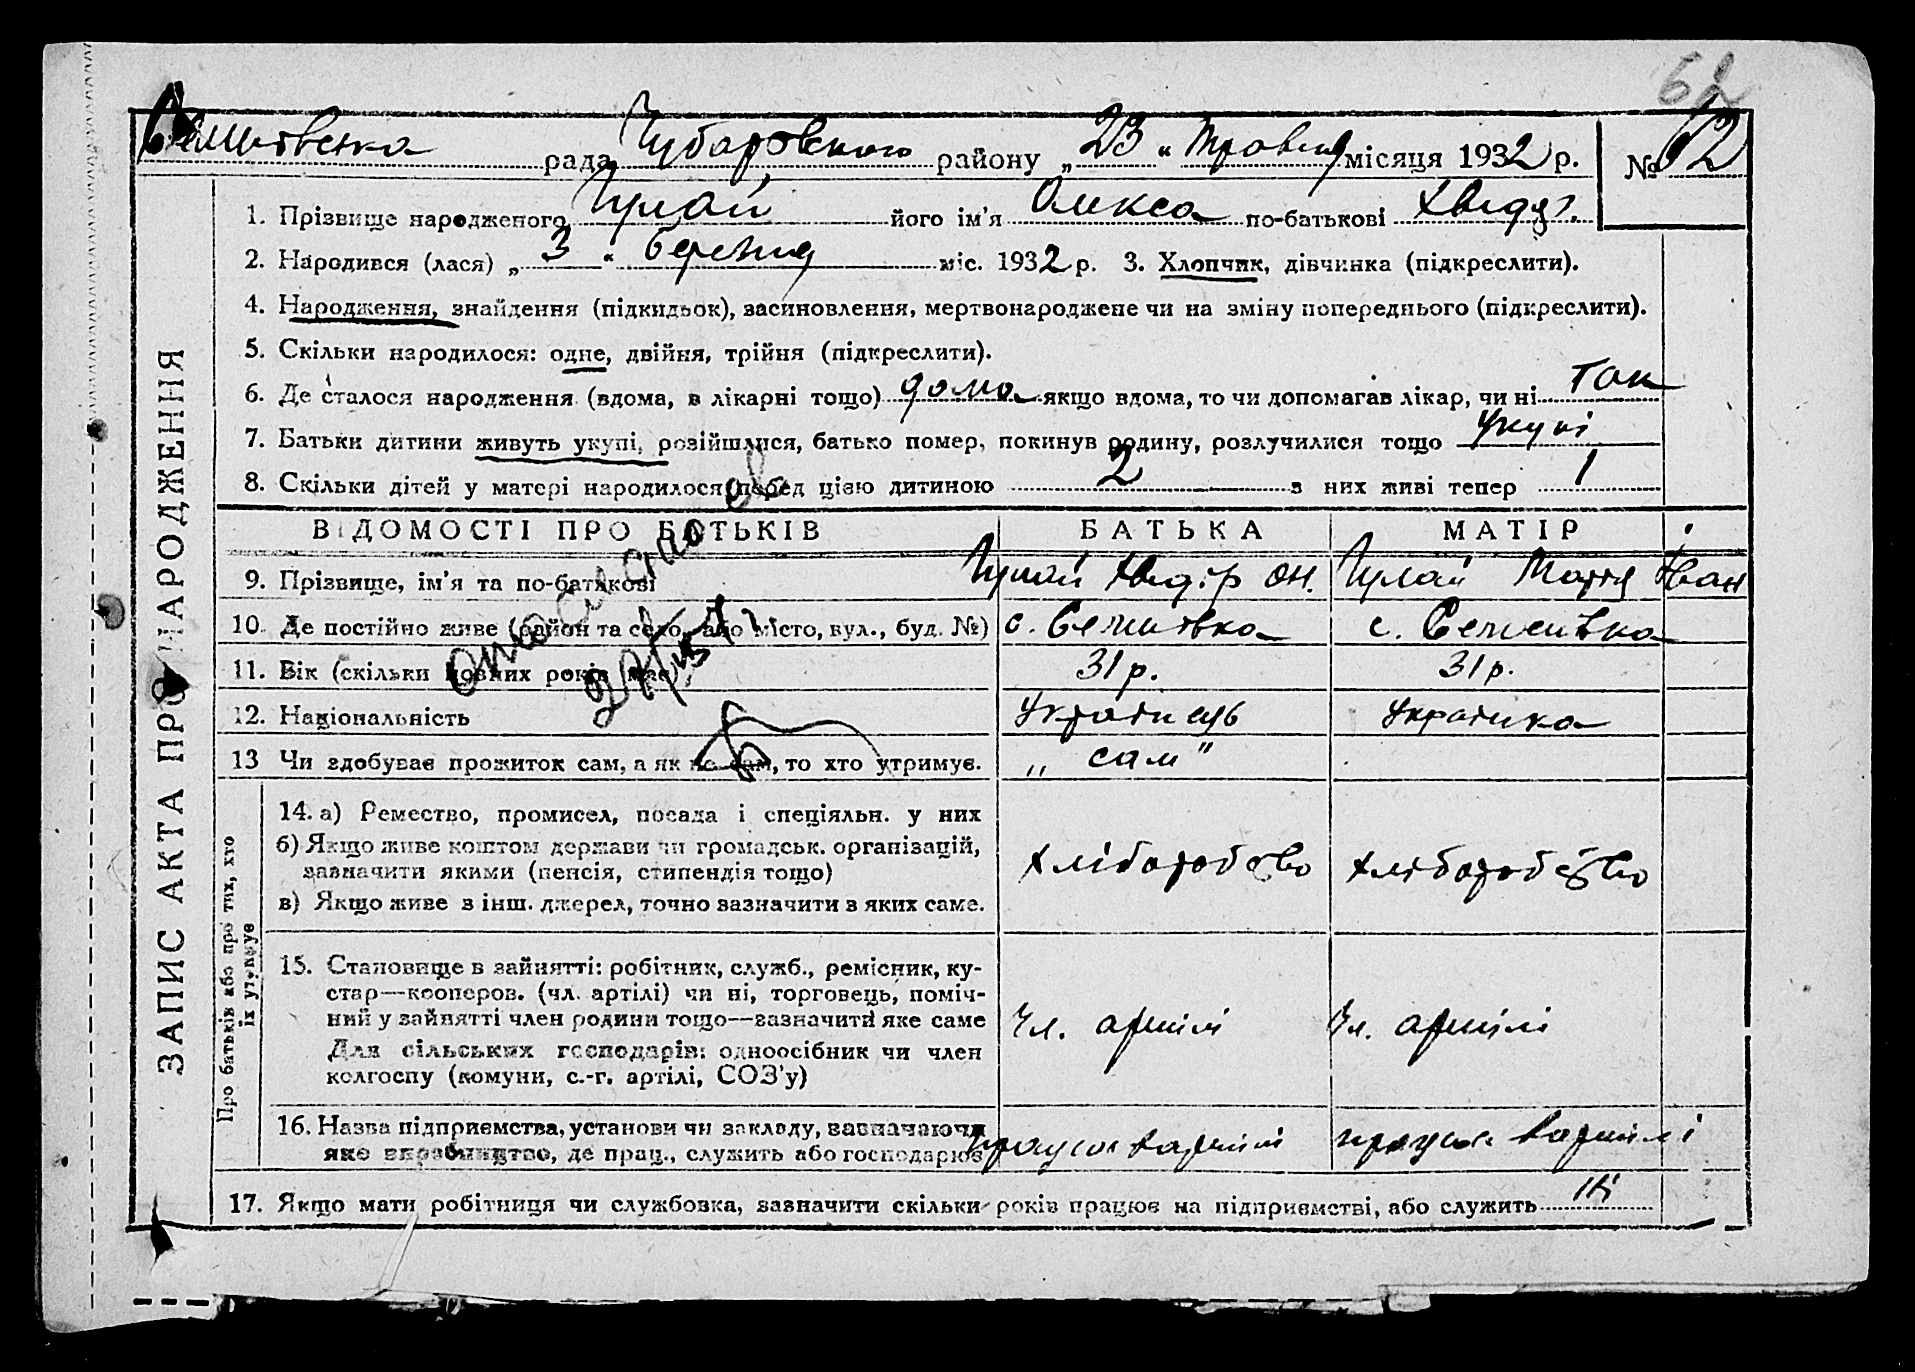 62
Семенівська рада Чубарівського району „23“ Травня місяця 1932 р. № 62
ЗАПИС АКТА ПРО НАРОДЖЕННЯ
1. Прізвище народженого Цулай його ім'я Олекса по-батькові Хведор.
2. Народився (лася) „3“ березня міс. 1932 р. 3. Хлопчик, дівчинка (підкреслити).
4. Народження, знайдення (підкидьок), засиновлення, мертвонароджене чи на зміну попереднього (підкреслити).
5. Скільки народилося: одне, двійня, трійня (підкреслити).
6. Де сталося народження (вдома, в лікарні тощо) дома якщо вдома, то чи допомагав лікар, чи ні так
7. Батьки дитини живуть укупі, розійшлися, батько помер, покинув родину, розлучилися тощо укупі
8. Скільки дітей у матері народилося перед цією дитиною 2 з них живі тепер 1
ВІДОМОСТІ ПРО БАТЬКІВ БАТЬКА МАТІР
9. Прізвище, ім'я та по-батькові Цулай Хведір Цулай Мотря Іван
10. Де постійно живе (район та село, або місто, вул., буд. №) с. Семенівка с. Семенівка
11. Вік (скільки повних років має) 31 р. 31 р.
12. Національність Українець Українка
13 Чи здобуває прожиток сам, а як не сам, то хто утримує. „ сам "
Про батьків або про тих, хто їх утримує
14. а) Ремество, промисел, посада і спеціяльн. у них
б) Якщо живе коштом держави чи громадськ. організацій,
зазначити якими (пенсія, стипендія тощо)
в) Якщо живе з інш. джерел, точно зазначити з яких саме.
хліборобство хліборобство
15. Становище в зайнятті: робітник, служб., ремісник, ку-
стар—кооперов. (чл. артілі) чи ні, торговець, поміч-
ний у зайнятті член родини тощо—зазначити яке саме
Для сільських господарів: одноосібник чи член
колгоспу (комуни, с.-г. артілі, СОЗ'у)
чл. артілі чл. артілі
16. Назва підприємства, установи чи закладу, зазначаючи
яке виробництво, де прац., служить або господарює
працює в артілі працює в артілі
17. Якщо мати робітниця чи службовка, зазначити скільки років працює на підприємстві, або служить ні